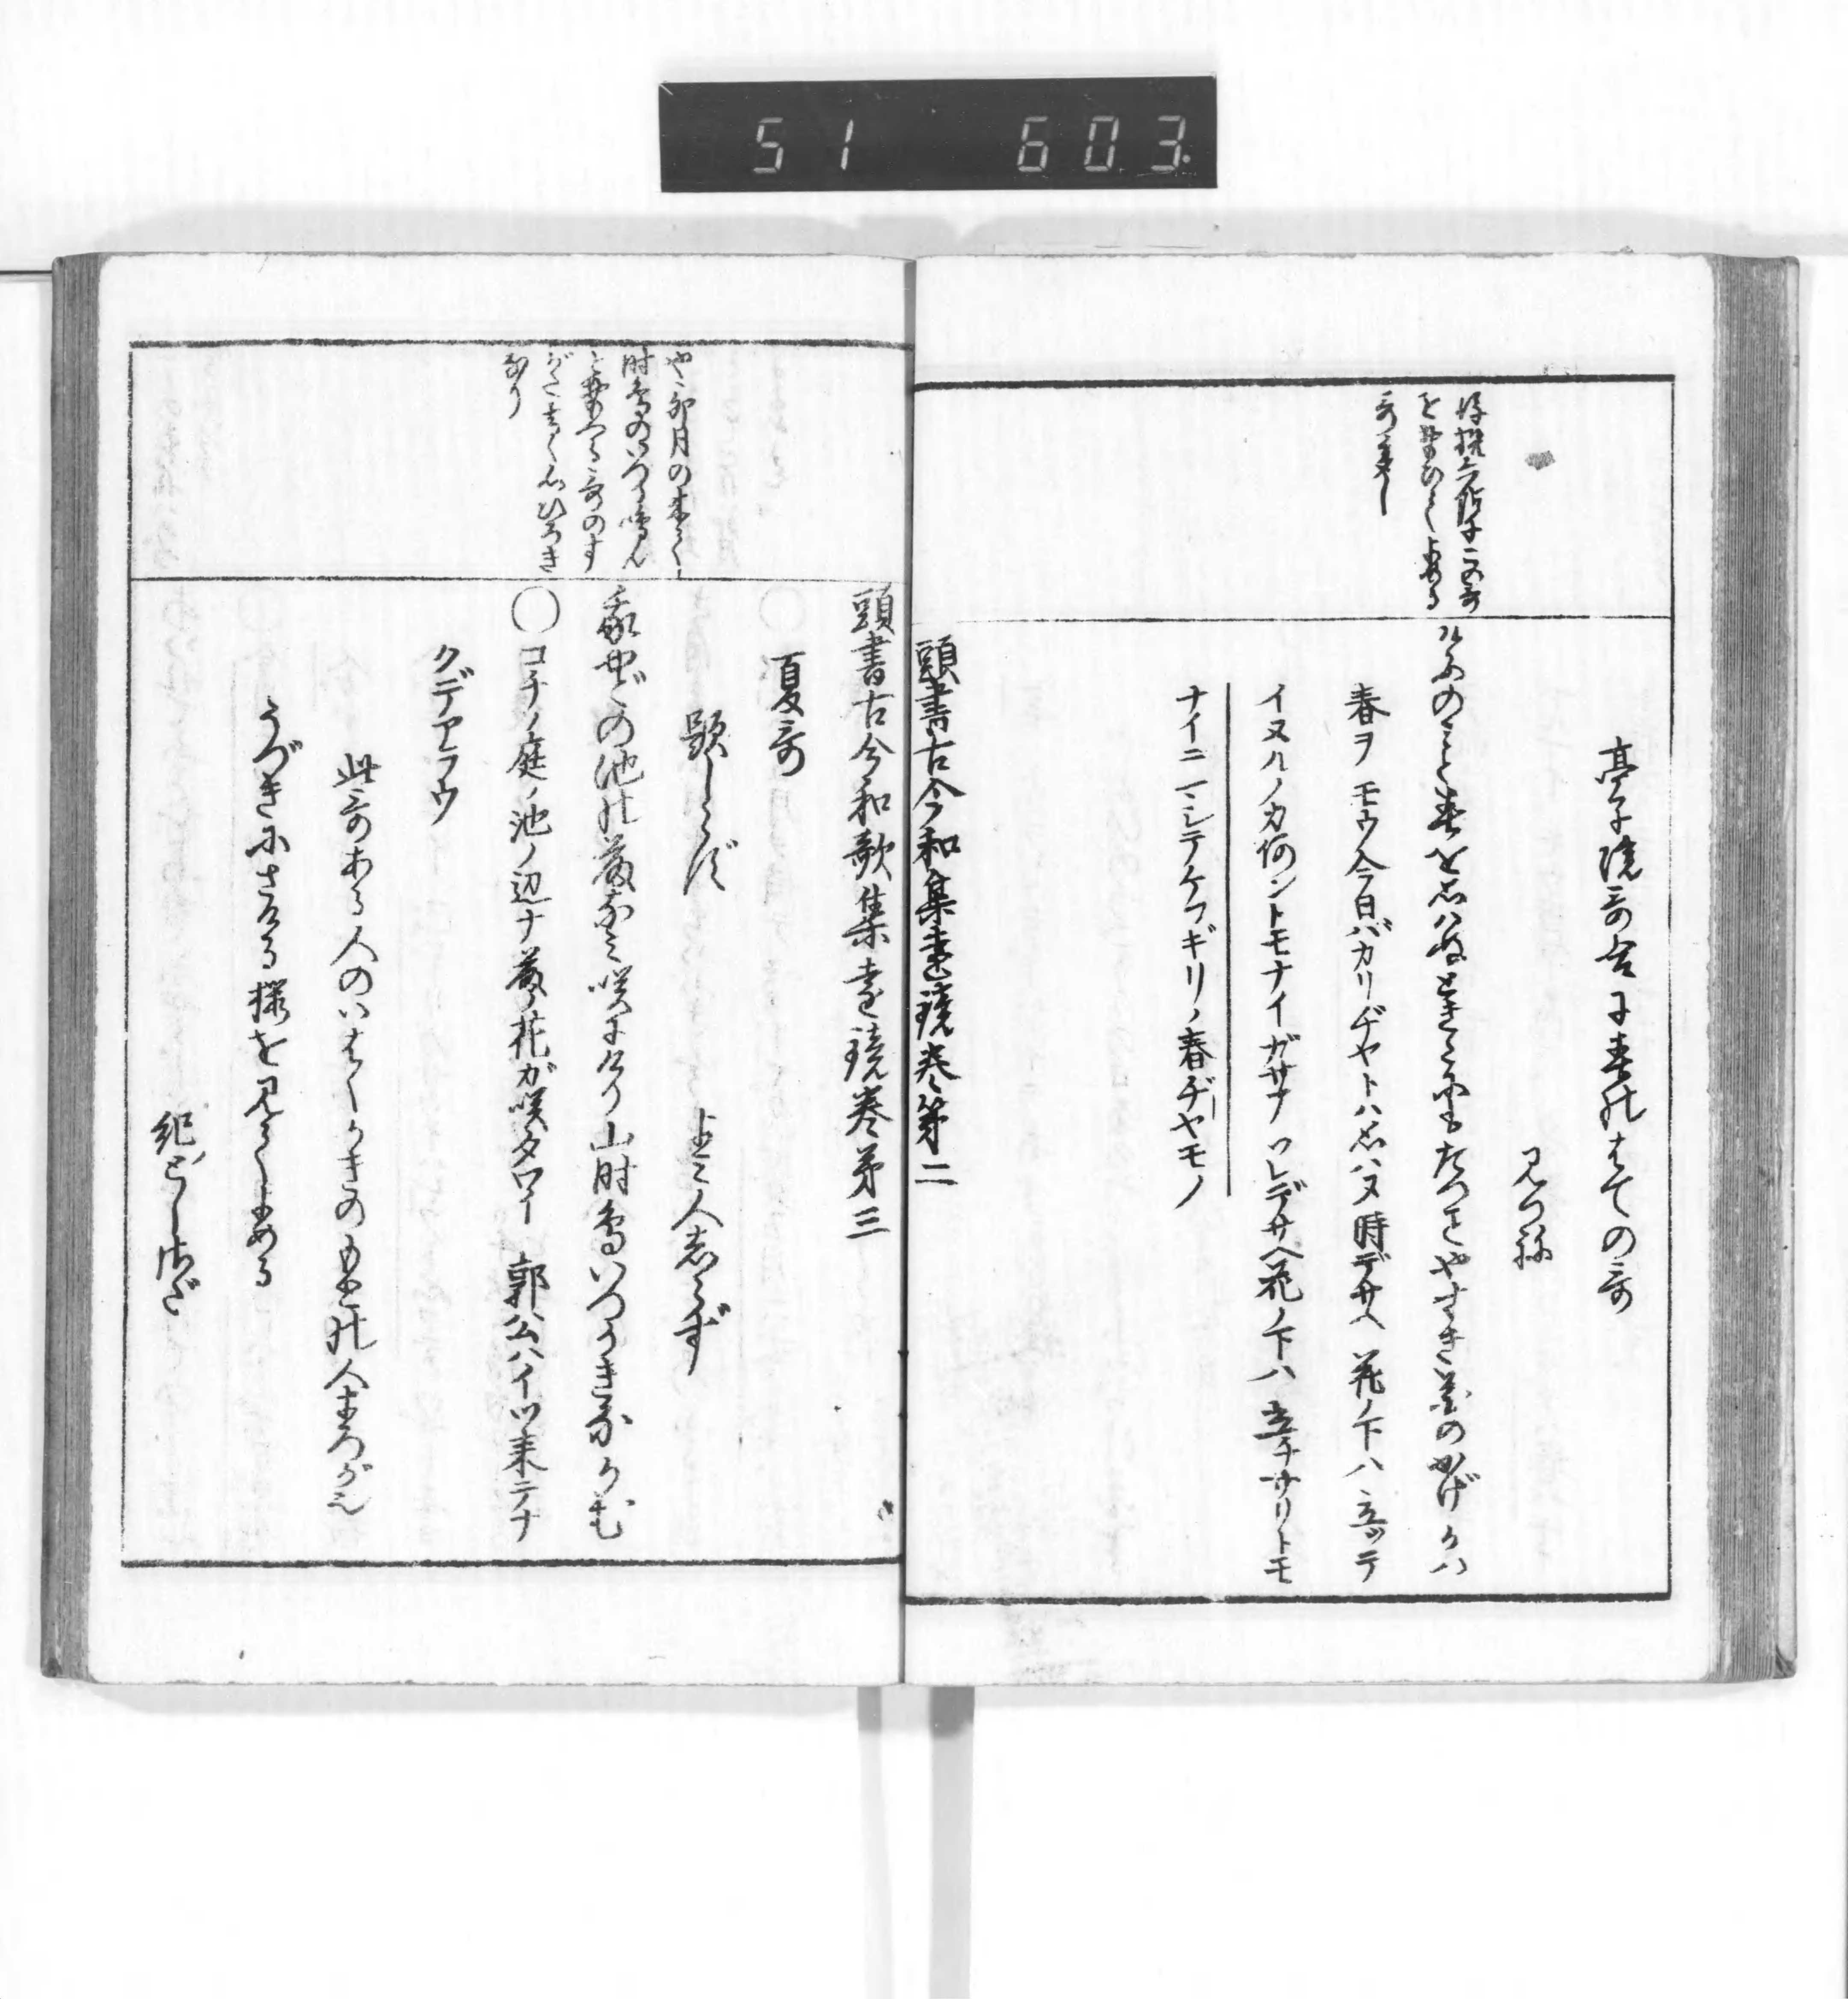 51 603
亭子院哥合に春のはての哥
みつね
けふのみと春を思はぬときたにもたつことやすき花のかげかは
春ヲ モウ今日バカリヂヤトハ思ハヌ時デサヘ 花ノ下ハ立ッテ
イヌルノカ何ントモナイガサナ ソレデサヘ花ノ下ハ 立チサリトモ
ナイニ マシテケフギリノ春ヂヤモノ
頭書古今和集遠鏡巻第二
やゝ卯月の末
時鳥のいつか鳴ん
頭書古今和歌集遠鏡巻第三
夏哥
題しらず
よミ人志らず
我やどの池の藤なミ咲にけり山時鳥いつかきなかむ
〇コチノ庭ノ池ノ辺ナ藤ノ花ガ咲タワイ 郭公ハイツ来テナ
クデアラウ
此哥ある人のいはくかきのもとの人まろが也
うづきにさける桜を見てよめる
紀としさだ